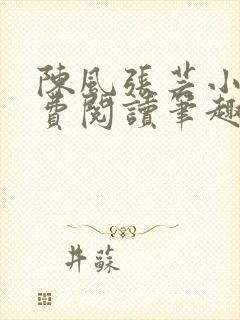 陳風張芸小
費閱讀筆趣
井蘇